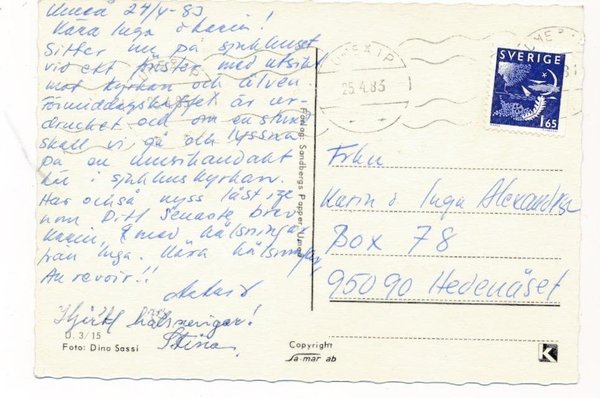 Umeå 24/4-83
Kära Inga o Karin!
Sitter nu på sjukhuset
vid ett fönster med utsikt
mot kyrkan och älven
förmiddagskaffet är ur-
drucket och om en stund
skall vi gå och lyssna
på en musikandakt
här i sjukhuskyrkan.
Har också nyss läst ige-
nom Ditt senaste brev
Karin, med hälsningar
från Inga. Kära hälsningar,
Au revoir!!
Hjärtl hälsningar!
Stina
D. 3/15
Foto: Dino Sassi
Förlag: Sandbergs Papper, Umeå
UMEX 1 P
25.4.83
SVERIGE
165
Frkn
Karin o Inga
Box 78
95090 Hedenäset
Copyright
sa-mar ab
K